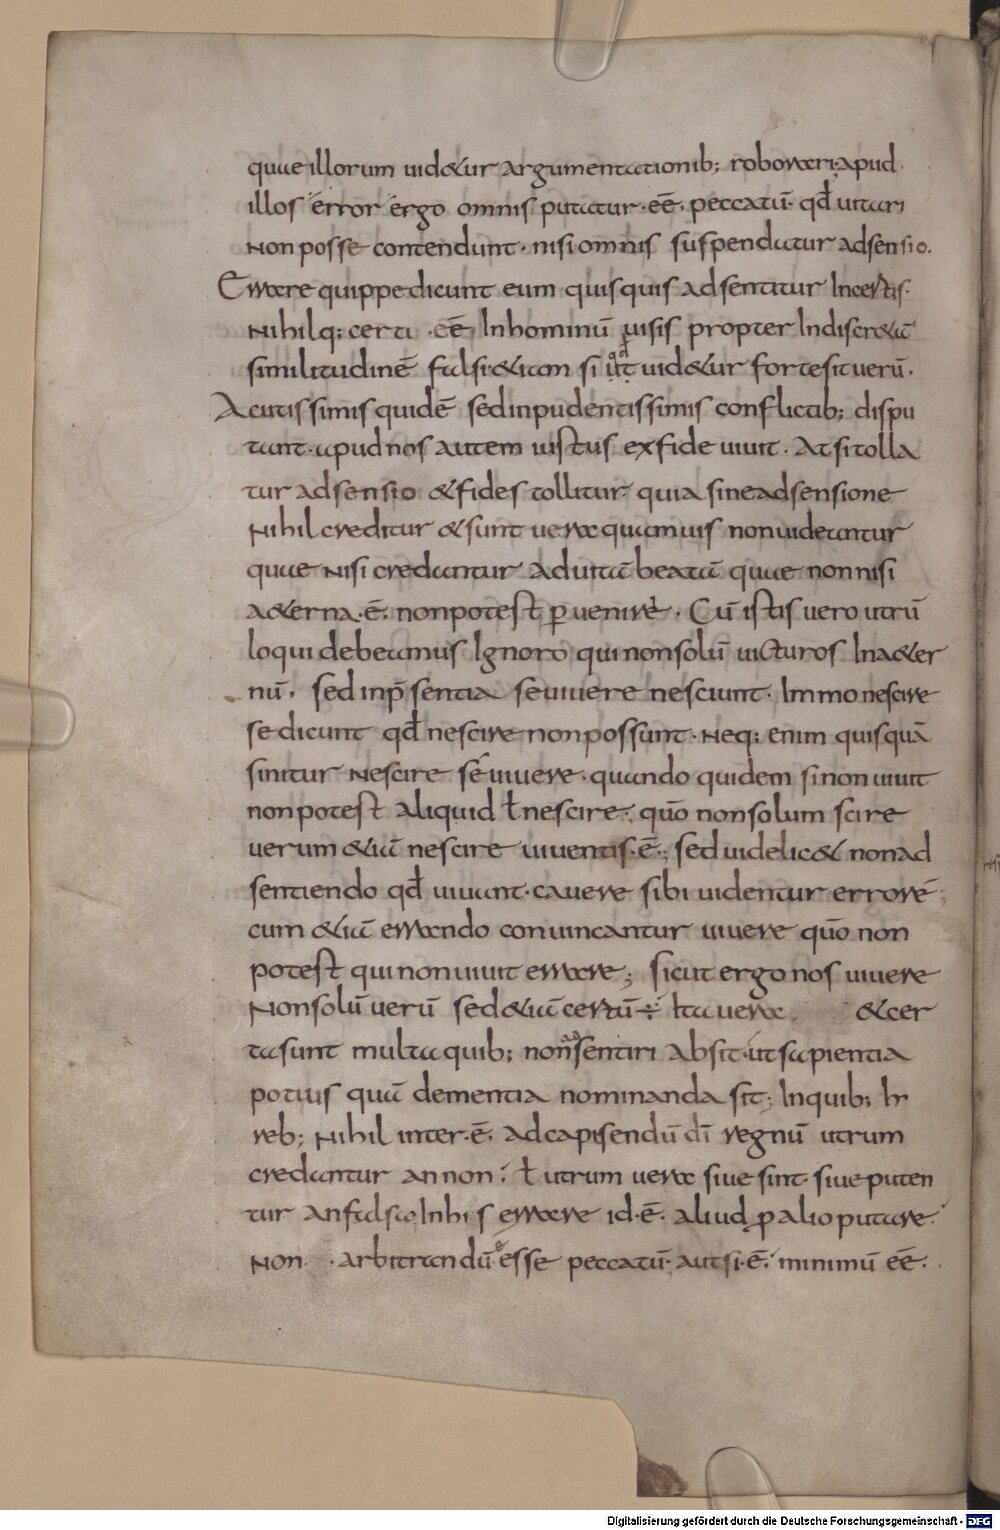 quae illorum uid&ur argumentationib; roborari; apud
illos error ergo omnis putatur·eē· peccatū· qđ uitari
Non posse contendunt· nisi omnis suspendatur adsensio.
Errare quippe dicunt eum quisquis adsentitur Incertis·
Nihilq; certi ·eē· In hominū uisis propter Indiscr&ā
similitudinē falsi· &iam si uid&ur forte sit uerū.
Acutissimis quidē sed inpudentissimis conflictib; dispu
tant· apud nos autem iustus ex fide uiuit· At si tolla
tur adsensio & fides tollitur· quia sine adsensione
Nihil creditur & sunt uera quamuis non uideantur
quae nisi credantur ad uitā beatā quae non nisi
a&erna·ē· non potest ꝑuenire· Cū istis uero utrū
loqui debeamus Ignoro qui non solū uicturos In a&er
nū· sed in p̄sentia se uiuere nesciunt· Immo nescire
se dicunt qđ nescire non possunt· Neq; enim quisquā
sinitur Nescire se uiuere· quando quidem si non uiuit
non potest aliquid ł nescire· quō non solum scire
uerum &iā nescire uiuentis·ē·; sed uidelic& non ad
sentiendo qđ uiuant· cauere sibi uidentur errorē·
cum &iā errando conuincantur uiuere quō non
potest qui non uiuit errare; sicut ergo nos uiuere
Non solū uerū sed &iā certū÷ Ita uera & cer
ta sunt multa quib; non sentiri Absit· ut sapientia
potius quā dementia nominanda sit; In quib; In
reb; Nihil inter·ē· ad capisendū dī regnū utrum
credantur an non· ł utrum uera siue sint· siue puten
tur an falsa In his errare id·ē· aliud ꝑ alio putare·
Non · arbitrandū esse peccatū· aut si·ē· minimū eē·
Digitalisierung gefördert durch die Deutsche Forschungsgemeinschaft - DFG